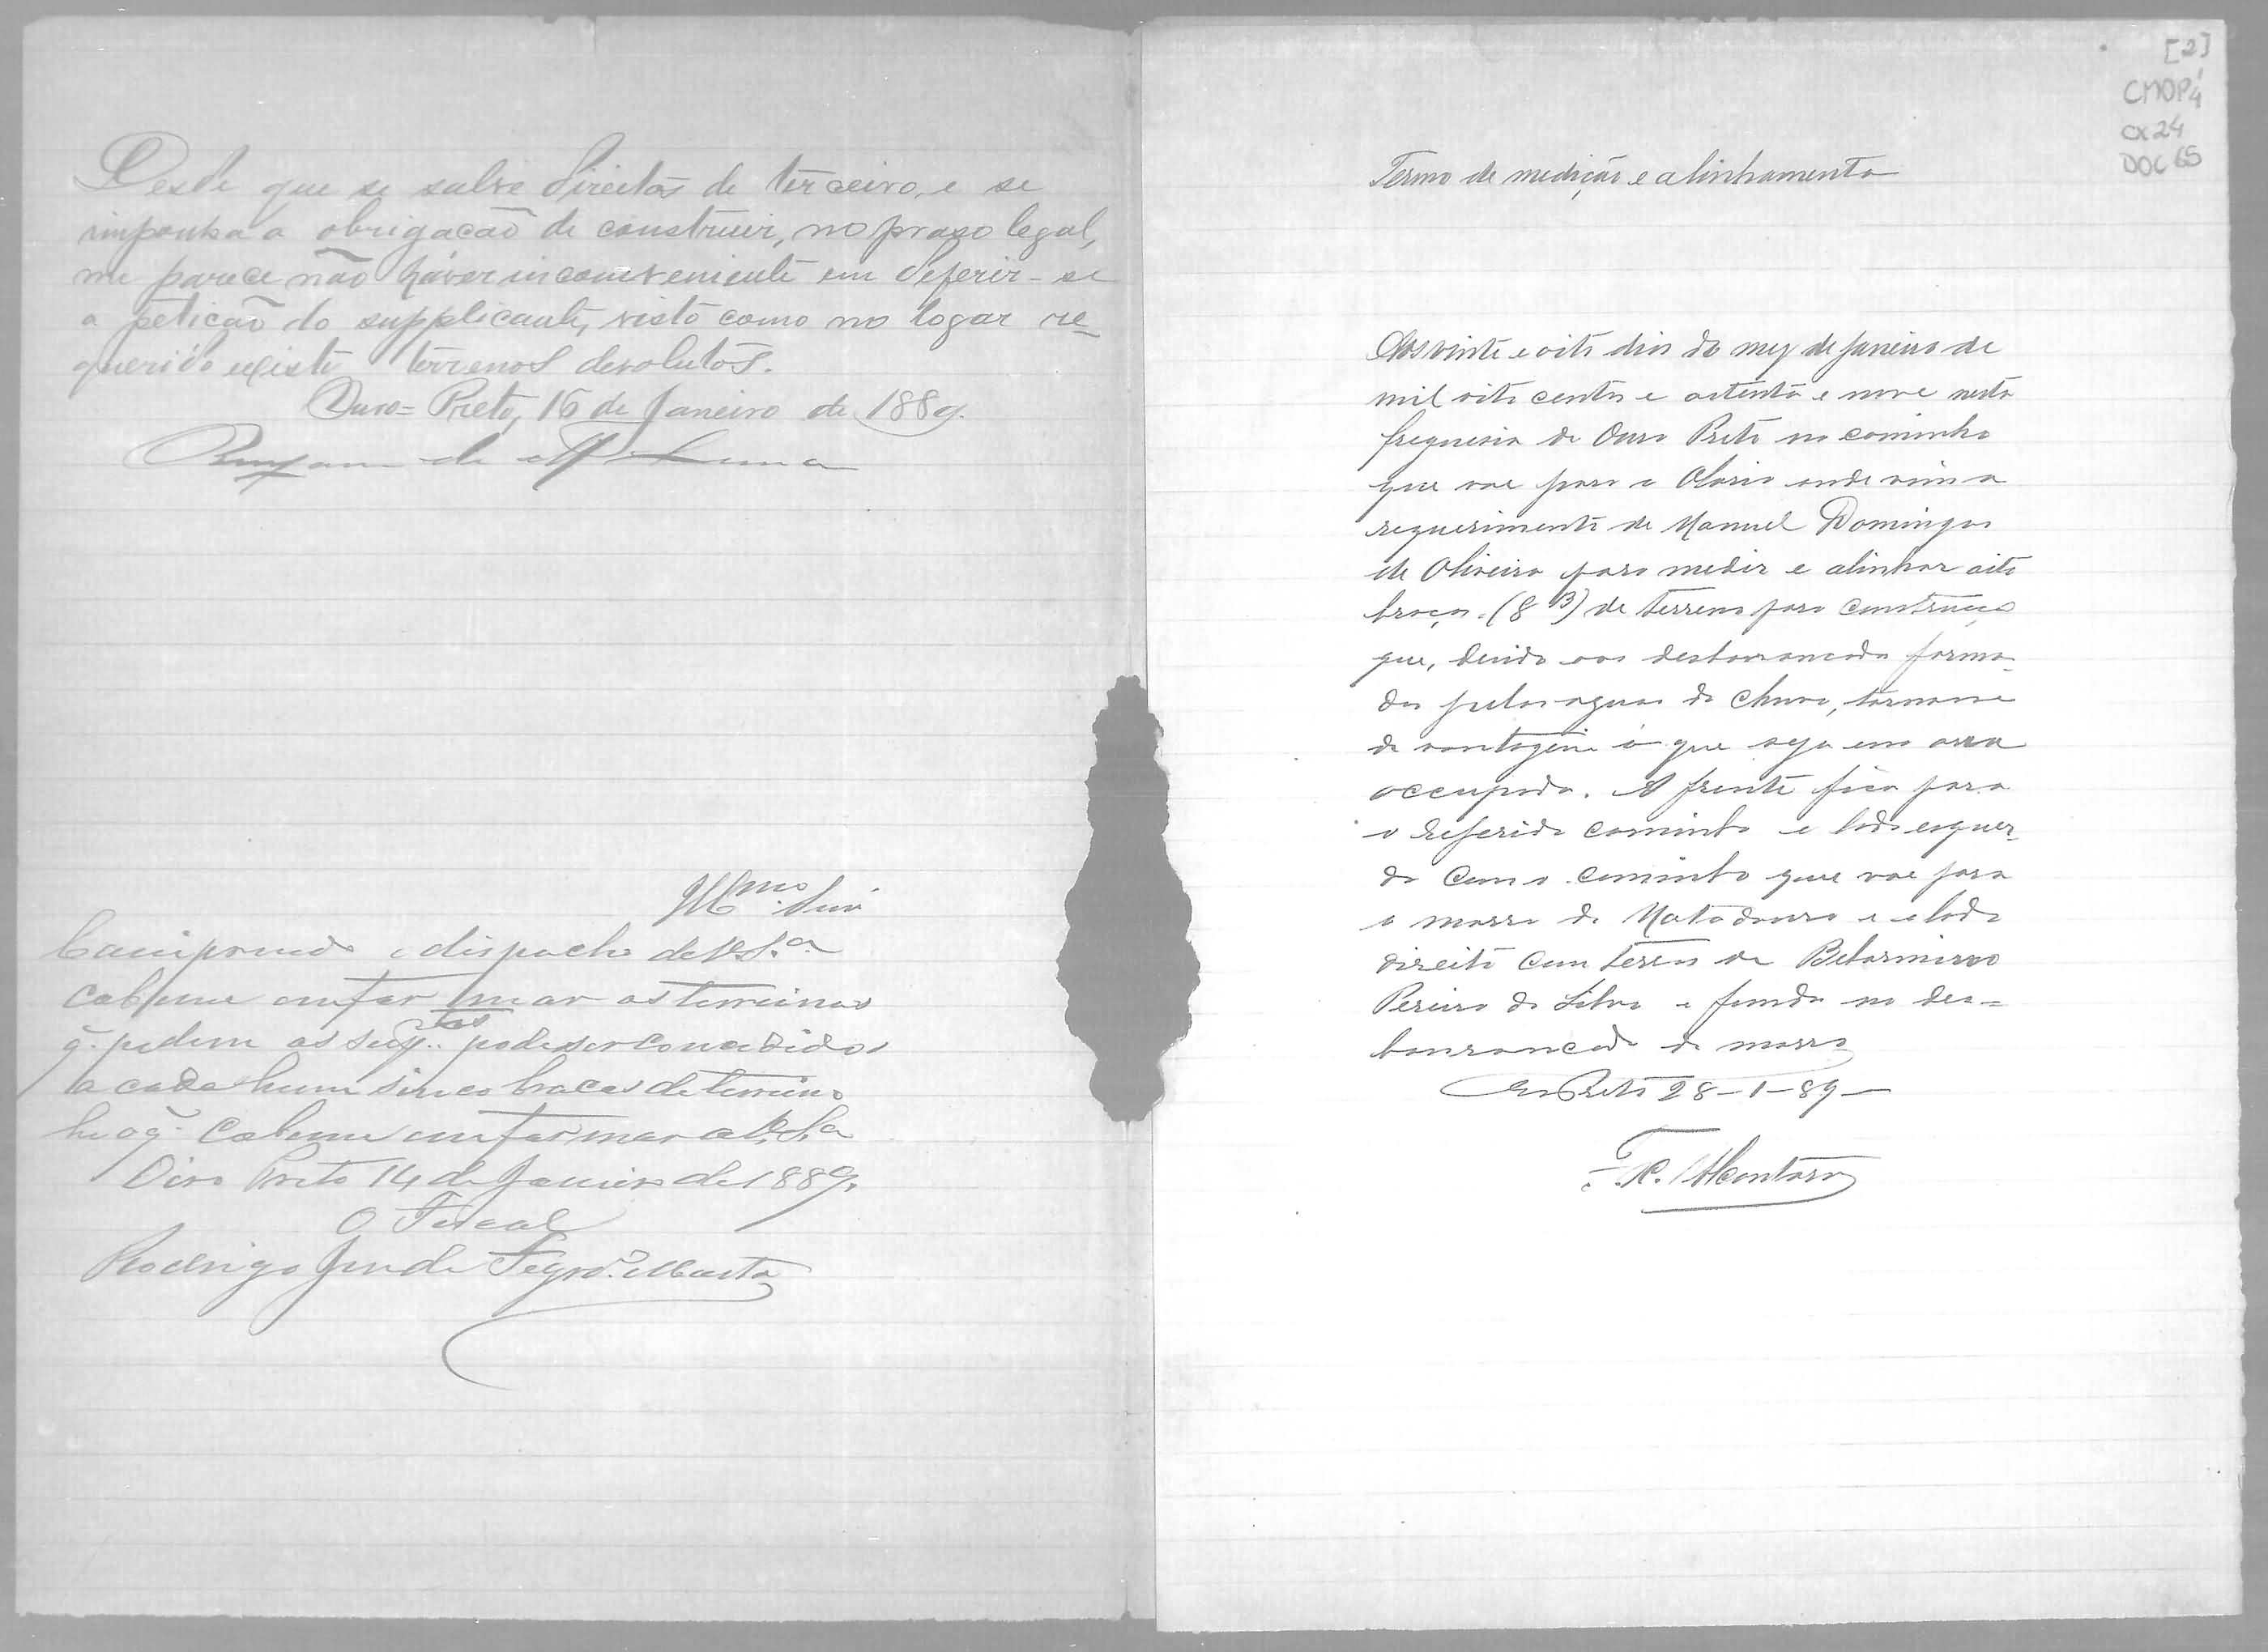 Desde que se salve direitos de terceiro, e se
imponha a obrigação de construir, no praso legal,
me parece não háver inconveniente em deferir-se
a petição do supplicante, visto como no logar re-
querido existe terrenos devolutos.
Ouro=Preto, 16 de Janeiro de 1889.
de Lima
Illmo. Snr
Cumprindo o dispacho de V.S.a
cabeme emformar os terreinos
q. pedem os sup.tes pode ser concedidos
a cada hum sinco bracas de terreino
he o q. Cabeme emformar a V.S.a
Oiro Preto 14 de Janeiro de 1889.
O Fiscal
Rodrigo de Figrdo. Marta
[2]
CMOP
CX 24
DOC 65
Termo de medição e alinhamento
Aos vinte e oito dias do mez de Janeiro de
mil oito centos e oitenta e nove nesta
freguesia de Ouro Preto no caminho
que vae para a Olaria onde vim a
requerimento de Manuel Domingos
de Oliveira para medir e alinhar oito
braças (8 B) de terreno para construção
que, devido aos desbarrancados forma-
dos pelas aguas da chuva, torna-se
de vantagem é que seja essa area
occupada. A frente fica para
o referido caminho e lado esquer-
do com o caminho que vae para
o morro do Matadouro e o lado
direito com terras de Belarmino
Pereira da Silva e fundo no des=
barrancado do morro
O Preto 28-1-89-
F. C. Alcantara